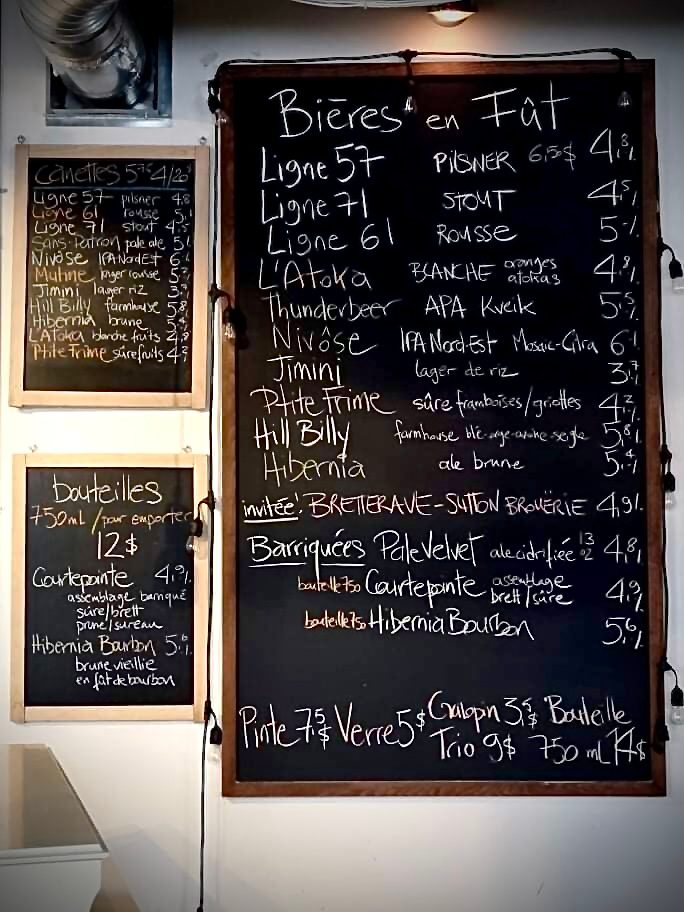 Canettes 5
Ligne 57 pilsner 4,8
Ligne 61 rousse 5,1
Ligne 71 stout 4,5
Sans-Patron pale ale 5
Nivôse IPA NordEst 6
Mutine lager rousse 5
Jimini lager riz 3,7
Hill Billy farmhouse 5,8
Hibernia brune 5,4
L'Atoka blanche fruits 4,8
Ptite Frime sûre fruits 4,2
bouteilles
750mL / pour emporter
12$
Courtepointe 4,9%
assemblage barriqué
sûre/brett
prune/sureau
Hibernia Bourbon 5,6%
brune vieillie
en fût de bourbon
Bières en Fût
Ligne 57 PILSNER 6,50$ 4,8%
Ligne 71 STOUT 4,5%
Ligne 61 ROUSSE 5%
L'Atoka BLANCHE oranges atokas 4,8%
Thunderbeer APA Kveik 5,5%
Nivôse IPA Nord-Est Mosaic-Citra 6%
Jimini lager de riz 3,7%
Ptite Frime sûre framboises/griottes 4,2%
Hill Billy farmhouse blé-orge-avoine-seigle 5,8%
Hibernia ale brune 5,4%
invitée: BRETTERAVE-SUTTON BROUËRIE 4,9%
Barriquées Pale Velvet ale cidrifiée 4,8%
bouteille 750 Courtepointe assemblage brett/sûre 4,9%
bouteille 750 Hibernia Bourbon 5,6%
Pinte 7,5$ Verre 5$ Galopin 3,5$ Bouteille
Trio 9$ 750 mL 14$